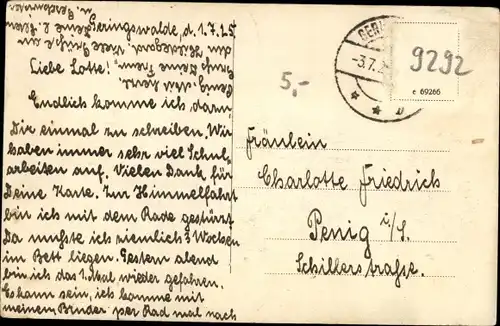 Geringswalde, d. 1.7.25.
Liebe Lotte!
Endlich komme ich dazu
Dir einmal zu schreiben. Wir
haben immer sehr viel Schul-
arbeiten auf. Vielen Dank für
Deine Karte. Zur Himmelfahrt
bin ich mit dem Rade gestürzt
Da mußte ich ziemlich 3 Wochen
im Bett liegen. Gestern abend
bin ich das 1. Mal wieder gefahren.
Es kann sein, ich komme mit
meinem Bruder per Rad mal nach
Penig. Seid herzl.
Deine Freun-
din Hildegard. Viele Grüße an
GERI
-3.7.
9292
e 69266
5,-
Fräulein
Charlotte Friedrich
Penig i/S.
Schillerstraße.